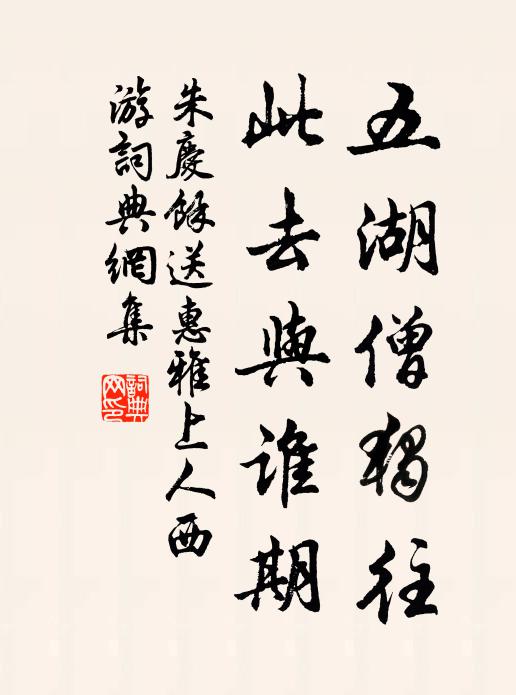 五湖僧獨往
此去與誰期
朱慶餘送惠雅上人西
游詞典網集
詞典網印